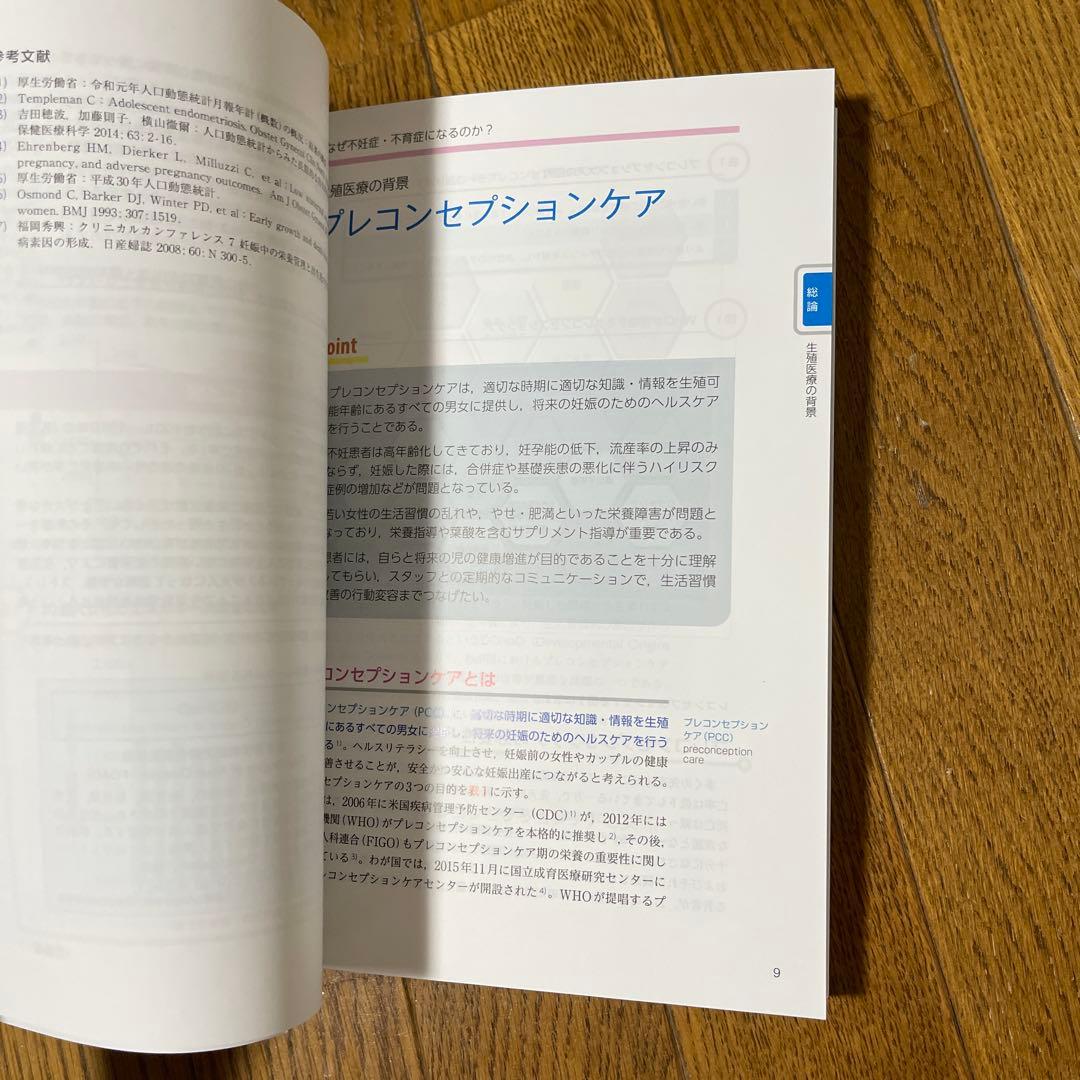 参考文献
1) 厚生労働省：令和元年人口動態統計月報年計（概数）の概況
2) Templeman C：Adolescent endometriosis. Obstet Gynecol Clin
3) 吉田穂波，加藤則子，横山徹爾：人口動態統計からみた長期的な
保健医療科学 2014；63：2-16．
4) Ehrenberg HM, Dierker L, Milluzzi C, et al：Low maternal
pregnancy, and adverse pregnancy outcomes. Am J Obstet Gynecol
5) 厚生労働省：平成30年人口動態統計．
6) Osmond C, Barker DJ, Winter PD, et al：Early growth and death
women. BMJ 1993；307：1519．
7) 福岡秀興：クリニカルカンファレンス 7 妊娠中の栄養管理
病素因の形成．日産婦誌 2008；60：N 300-5．
なぜ不妊症・不育症になるのか？
殖医療の背景
プレコンセプションケア
oint
プレコンセプションケアは，適切な時期に適切な知識・情報を生殖可
能年齢にあるすべての男女に提供し，将来の妊娠のためのヘルスケア
を行うことである。
不妊患者は高年齢化してきており，妊孕能の低下，流産率の上昇のみ
ならず，妊娠した際には，合併症や基礎疾患の悪化に伴うハイリスク
症例の増加などが問題となっている。
若い女性の生活習慣の乱れや，やせ・肥満といった栄養障害が問題と
なっており，栄養指導や葉酸を含むサプリメント指導が重要である。
患者には，自らと将来の児の健康増進が目的であることを十分に理解
してもらい，スタッフとの定期的なコミュニケーションで，生活習慣
改善の行動変容までつなげたい。
コンセプションケアとは
ンセプションケア（PCC）適切な時期に適切な知識・情報を生殖
にあるすべての男女に提供し，将来の妊娠のためのヘルスケアを行う
る1)。ヘルスリテラシーを向上させ，妊娠前の女性やカップルの健康
善させることが，安全かつ安心な妊娠出産につながると考えられる。
セプションケアの3つの目的を表1に示す。
は，2006年に米国疾病管理予防センター（CDC）1)が，2012年には
機関（WHO）がプレコンセプションケアを本格的に推奨し2)，その後，
人科連合（FIGO）もプレコンセプションケア期の栄養の重要性に関し
ている3)。わが国では，2015年11月に国立成育医療研究センターに
レコンセプションケアセンターが開設された4)。WHOが提唱するプ
プレコンセプション
ケア（PCC）
preconception
care
総論
生殖医療の背景
9